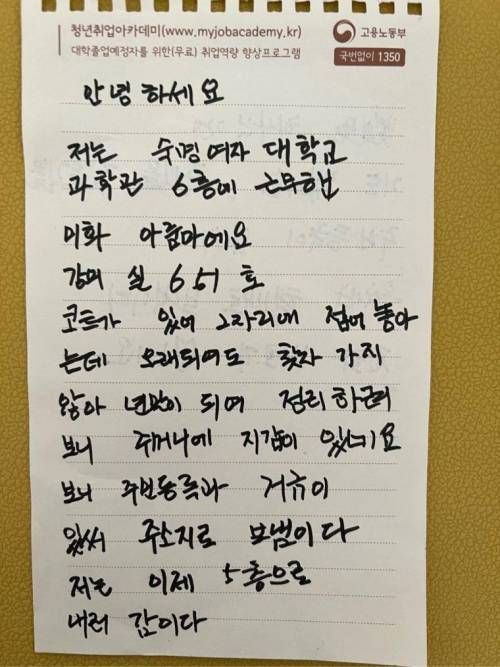 청년취업아카데미(www.myjobacademy.kr)
대학졸업예정자를 위한(무료) 취업역량 향상프로그램
고용노동부
국번없이 1350
안녕하세요
저는 숙명여자 대학교
과학관 6층에 근무한
미화 아줌마에요
강의실 651호
코트가 있어 그자리에 접어 놓아
는데 오래되여도 찾자 가지
않아 년말이 되여 정리하려
보니 주머니에 지갑이 있네요
보니 주민등록과 거유이
있써 주소지로 보냄이다
저는 이제 5층으로
내려 감이다